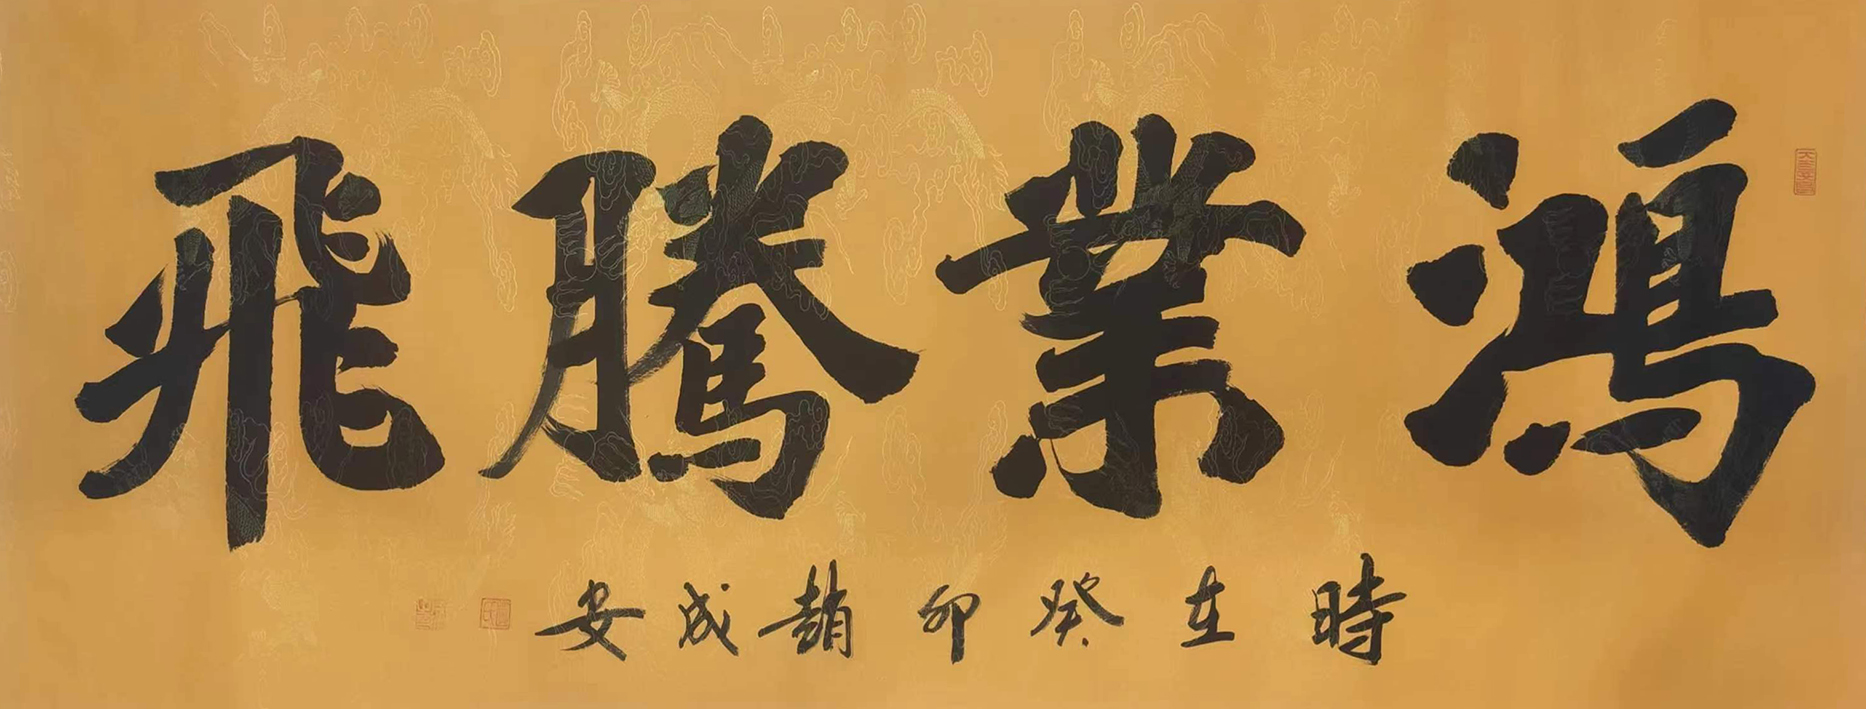 鴻業騰飛
時在癸卯趙成安